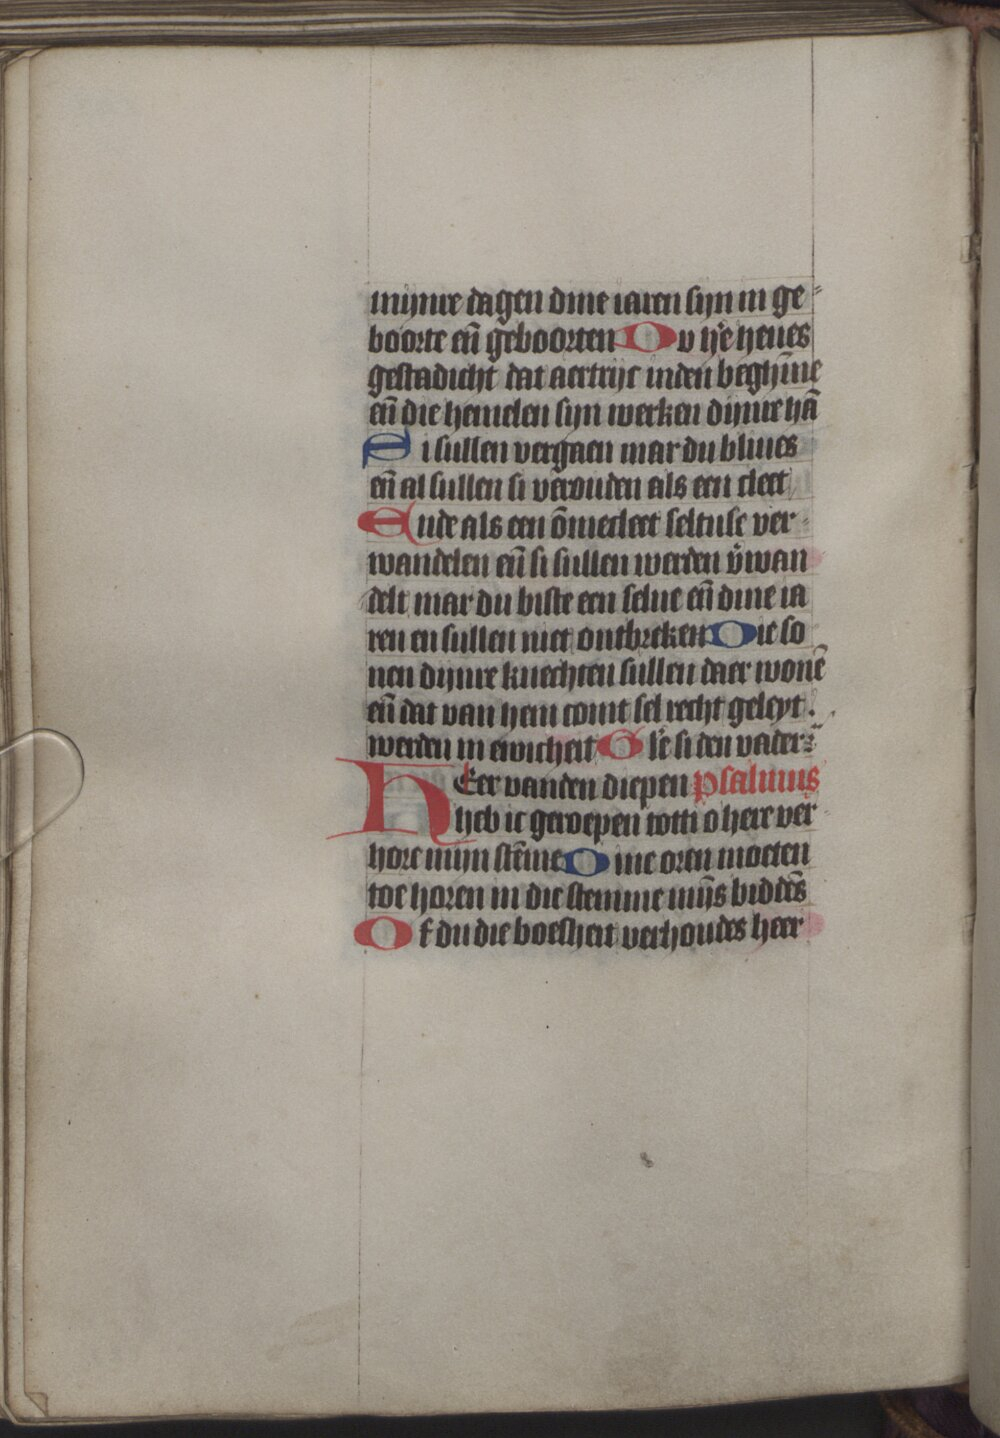 mijnre dagen dine iaren sijn in ge⸗
boorte en̄ geboorten Du he͛e heues
gestadicht dat aertrijc inden beghīne
en̄ die hemelen sijn werken dijnre hā
Si sullen vergaen mar du bliues
en̄ al sullen si verouden als een cleet
Ende als een ōmecleet seltuse ver⸗
wandelen en̄ si sullen werden v͛wan
delt mar du biste een selue en̄ dine ia
ren en sullen niet ontbreken Die so
nen dijnre knechten sullen daer wonē
en̄ dat van hem comt sel recht geleyt
werden in ewicheit Gl'e si den vader
HEer vanden diepen psalmus
heb ic geroepen totti o here ver
hore mijn stēme Dine oren moeten
toe horen in die stemme mijs biddēs
Of du die boesheit verhoudes heer